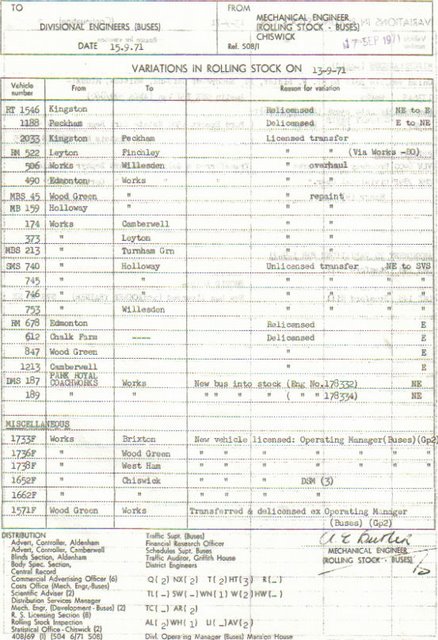 TO
FROM
DIVISIONAL ENGINEERS (BUSES)
MECHANICAL ENGINEER
(ROLLING STOCK - BUSES)
CHISWICK
DATE 15.9.71
Ref. 508/1
17 SEP 1971
VARIATIONS IN ROLLING STOCK ON 13-9-71
Vehicle number From To Reason for variation
RT 1546 Kingston Relicensed NE to E
1188 Peckham Delicensed E to NE
2033 Kingston Peckham Licensed transfer
RM 522 Leyton Finchley " " (Via Works -BO)
506 Works Willesden " overhaul
490 Edmonton Works " "
MBS 45 Wood Green " " repaint
MB 159 Holloway " " "
174 Works Camberwell " "
373 " Leyton " "
MBS 213 " Turnham Grn " "
SMS 740 " Holloway Unlicensed transfer NE to SVS
745 " " " " " " "
746 " " " " " " "
753 " Willesden " " " " "
RM 678 Edmonton Relicensed E
612 Chalk Farm ---- Delicensed E
847 Wood Green " E
1213 Camberwell " E
DMS 187 PARK ROYAL COACHWORKS Works New bus into stock (Eng No.178332) NE
189 " " " " " " ( " " 178334) NE
MISCELLANEOUS
1733F Works Brixton New vehicle licensed: Operating Manager(Buses)(Gp2)
1736F " Wood Green " " " " " "
1738F " West Ham " " " " " "
1652F " Chiswick " " " DSM (3)
1662F " " " " " " "
1571F Wood Green Works Transferred & delicensed ex Operating Manager
(Buses) (Gp2)
DISTRIBUTION
Advert, Controller, Aldenham
Advert, Controller, Camberwell
Blinds Section, Aldenham
Body Spec. Section,
Central Record
Commercial Advertising Officer (6)
Costs Office (Mech. Engr.-Buses)
Scientific Adviser (2)
Distribution Services Manager
Mech. Engr. (Development - Buses) (2)
R. S. Licensing Section (8)
Rolling Stock Inspection
Statistical Office - Chiswick (2)
408/69 (I) (504 6/71 508)
Traffic Supt. (Buses)
Financial Research Officer
Schedules Supt. Buses
Traffic Auditor, Griffith House
District Engineers
Q(2) NX(2) T(2) HT(3) R(-)
TL(-) SW(-) WN(1) W(2) HW(-)
TC(-) AR(2)
AL(2) WH(1) U(-) AV(2)
Divl. Operating Manager (Buses) Mansion House
MECHANICAL ENGINEER
(ROLLING STOCK - BUSES)